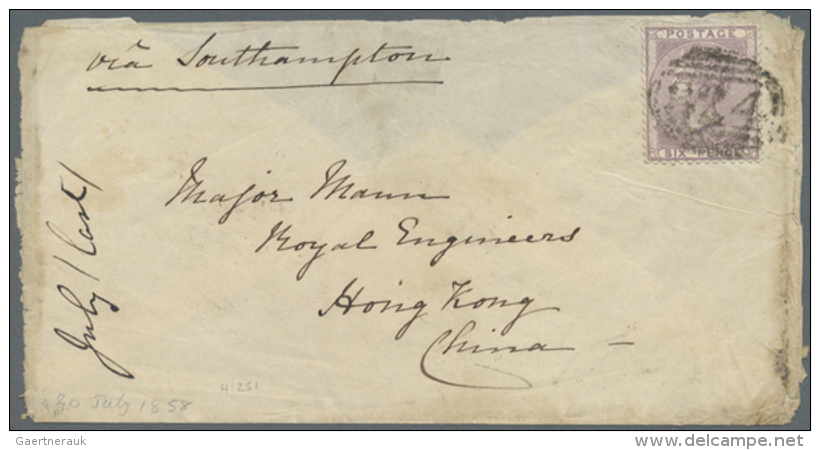 via Southampton
POSTAGE
SIX PENCE
Major Mann
Royal Engineers
Hong Kong
China
July / last /
20 July 1858
41251
Gaertnerauk
www.delcampe.net